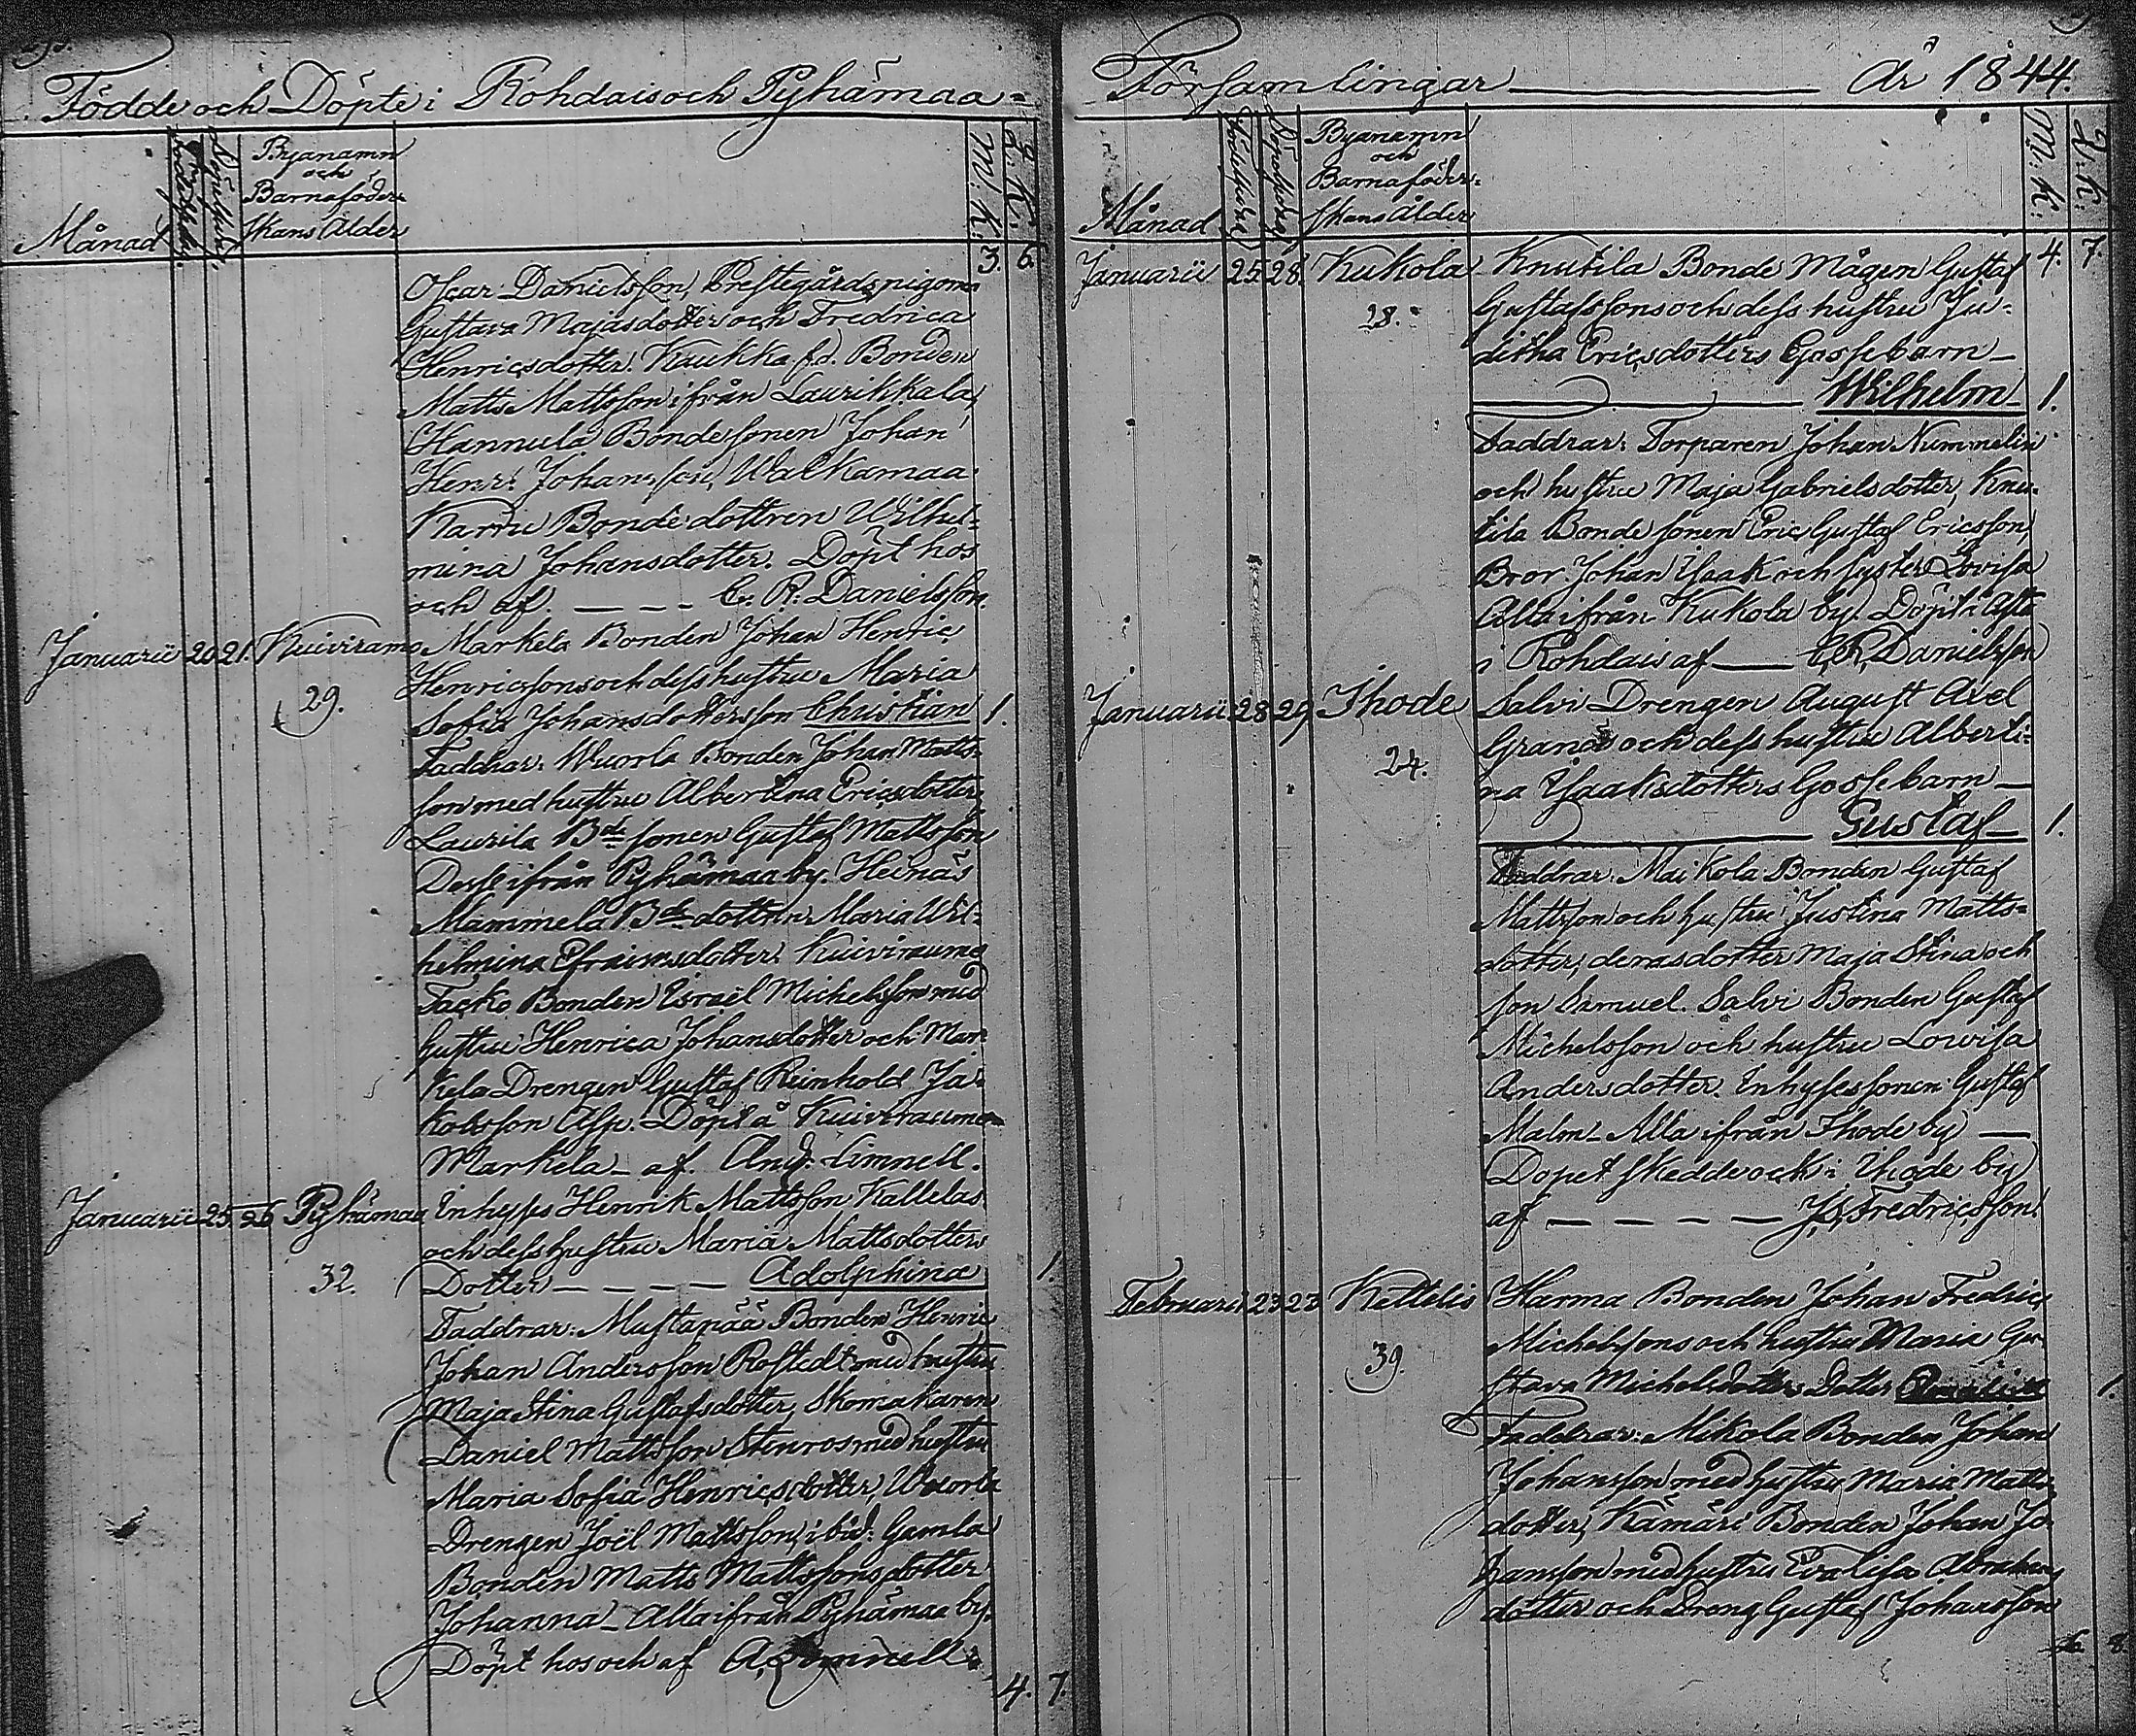 Födde och Döpte i Rohdais och Pyhämaa=
Månad
Födelsedag
Döpelsedag
Byanamn
och
Barnaföder=
skans Ålder
M: K:
Q: K:
3. 6.
Oscar Danielsson, Prestegårdspigorna
Gustava Majasdotter och Fredrica
Henricsdotter. Kaukka f.d. Bonden
Matts Mattsson ifrån Laurikkala,
Hannula Bondesonen Johan
Henr: Johansson, Walkamaa
Karru Bondedottren Wilhel=
mina Johansdotter. Döpt hos
och af. — — — C. R. Danielsson.
Januarii 20 21. Kuiviramo Markela Bonden Johan Henric
Henricssons och dess hustru Maria
29.
Sofia Johansdotters son Christian 1.
Faddrar: Wuorla Bonden Johan Matts=
son med hustru Albertina Ericsdotter,
Laurila Bde sonen Gustaf Mattsson
Desse ifrån Pyhämaa by. Heinäs
Mammela Bde dottren Maria Wil=
helmina Efraimsdotter. Kuivirauma
Jacko Bonden Israël Michelsson med
hustru Henrica Johansdotter och Mar=
kela Drengen Gustaf Reinhold Ja=
kobsson Asp. Döpt å Kuivirauma
Markela — af. And. Limnell.
Januarii 25. 26 Pyhämaa Inhyses Henrik Mattsson Kallelas
och dess hustru Maria Mattsdotters
32. Dotter — — — — Adolphina 1.
Faddrar: Mustapää Bonden Henric
Johan Andersson Rostedt med hustru
Maja Stina Gustafsdotter, Skomakaren
Daniel Mattsson Stenros med hustru
Maria Sofia Henricsdotter, Wuorla
Drengen Joël Mattsson, ibid: Gamla
Bonden Matts Mattssons dotter
Johanna — Alla ifrån Pyhämaa by.
Döpt hos och af A. Limnell.
4. 7.
Församlingar — År 1844.
Månad
Födelsedag
Döpelsedag
Byanamn
och
Barnaföder=
skans Ålder
M: K:
Q: K:
Januarii 25. 28. Kukola Knutila Bonde Mågen Gustaf 4. 7.
Gustafssons och dess hustru Ju=
28.
ditha Ericsdotters Gossebarn —
Wilhelm 1.
Faddrar: Torparen Johan Nummelin
och hustru Maja Gabrielsdotter, Knu=
tila Bonde sonen Eric Gustaf Ericsson,
Bror Johan Isaak och syster Lovisa
Alla ifrån Kukola by. Döpt i
i Rohdais af — C. R. Danielsson
Januarii 28 29 Ihode Salvi Drengen August Axel
Grano och dess hustru Alberti=
24.
na Isaaksdotters Gossebarn —
Gustaf — 1.
Faddrar: Maikola Bonden Gustaf
Mattsson och hustru Justina Matts=
dotter, deras dotter Maja Stina och
son Samuel. Salvi Bonden Gustaf
Michelsson och hustru Lowisa
Andersdotter. Inhyses sonen Gustaf
Malm — Alla ifrån Ihode by —
Dopet skedde ock i Ihode by
af — — — — — Js. Fredricsson.
Februarii 23 23 Kettelis Harma Bonden Johan Fredric
Michelssons och hustru Maria Gu=
39.
stava Michelsdotters Dotter 1.
Faddrar: Mikola Bonden Johan
Johansson med hustru Maria Matts=
dotter, Kämäri Bonden Johan Jo=
hansson med hustru Eva Lisa Abrahams
dotter och Dreng Gustaf Johansson
8.